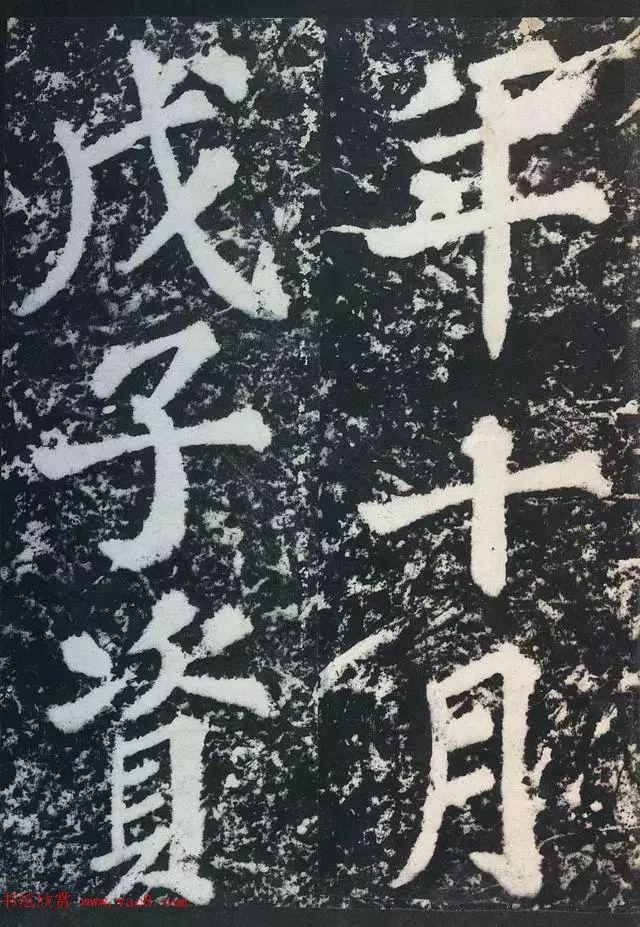 年十月
戊子資
书法欣赏 www.yac8.com